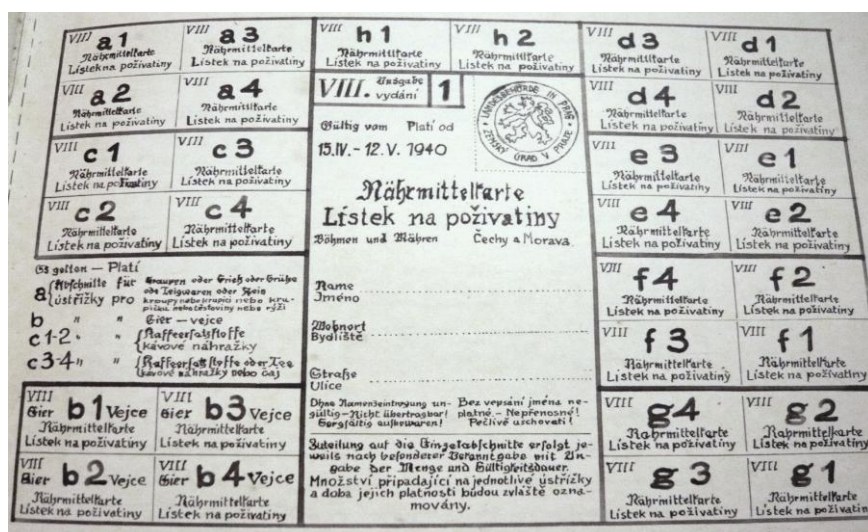 VIII a1
Nährmittelkarte
Lístek na poživatiny
VIII a3
Nährmittelkarte
Lístek na poživatiny
VIII a2
Nährmittelkarte
Lístek na poživatiny
VIII a4
Nährmittelkarte
Lístek na poživatiny
VIII c1
Nährmittelkarte
Lístek na poživatiny
VIII c3
Nährmittelkarte
Lístek na poživatiny
VIII c2
Nährmittelkarte
Lístek na poživatiny
VIII c4
Nährmittelkarte
Lístek na poživatiny
Es gelten — Platí
a Abschnitte für Graupen oder Grieß oder Grütze
oder Teigwaren oder Reis
ústřižky pro kroupy nebo krupici nebo kru-
pičku nebo těstoviny nebo rýži
b " " Eier — vejce
c 1-2 " " Kaffeersatzstoffe
kávové náhražky
c 3-4 " " Kaffeersatzstoffe oder Tee
kávové náhražky nebo čaj
VIII Eier b1 Vejce
Nährmittelkarte
Lístek na poživatiny
VIII Eier b3 Vejce
Nährmittelkarte
Lístek na poživatiny
VIII Eier b2 Vejce
Nährmittelkarte
Lístek na poživatiny
VIII Eier b4 Vejce
Nährmittelkarte
Lístek na poživatiny
VIII h1
Nährmittelkarte
Lístek na poživatiny
VIII h2
Nährmittelkarte
Lístek na poživatiny
VIII. Ausgabe
vydání 1
LANDESBEHÖRDE IN PRAG
ZEMSKÝ ÚŘAD V PRAZE
Gültig vom Platí od
15.IV. - 12.V. 1940
Nährmittelkarte
Lístek na poživatiny
Böhmen und Mähren Čechy a Morava
Name
Jméno
Wohnort
Bydliště
Straße
Ulice
Ohne Namenseintragung un-
gültig — Nicht übertragbar!
Sorgfältig aufbewaren!
Bez vepsání jména ne-
platné. - Nepřenosné!
Pečlivě uschovati!
Zuteilung auf die Einzelabschnitte erfolgt je-
weils nach besonderer Bekanntgabe mit An-
gabe der Menge und Gültigkeitsdauer.
Množství připadající na jednotlivé ústřižky
a doba jejich platnosti budou zvláště ozna-
movány.
VIII d3
Nährmittelkarte
Lístek na poživatiny
VIII d1
Nährmittelkarte
Lístek na poživatiny
VIII d4
Nährmittelkarte
Lístek na poživatiny
VIII d2
Nährmittelkarte
Lístek na poživatiny
VIII e3
Nährmittelkarte
Lístek na poživatiny
VIII e1
Nährmittelkarte
Lístek na poživatiny
VIII e4
Nährmittelkarte
Lístek na poživatiny
VIII e2
Nährmittelkarte
Lístek na poživatiny
VIII f4
Nährmittelkarte
Lístek na poživatiny
VIII f2
Nährmittelkarte
Lístek na poživatiny
VIII f3
Nährmittelkarte
Lístek na poživatiny
VIII f1
Nährmittelkarte
Lístek na poživatiny
VIII g4
Nährmittelkarte
Lístek na poživatiny
VIII g2
Nährmittelkarte
Lístek na poživatiny
VIII g3
Nährmittelkarte
Lístek na poživatiny
VIII g1
Nährmittelkarte
Lístek na poživatiny